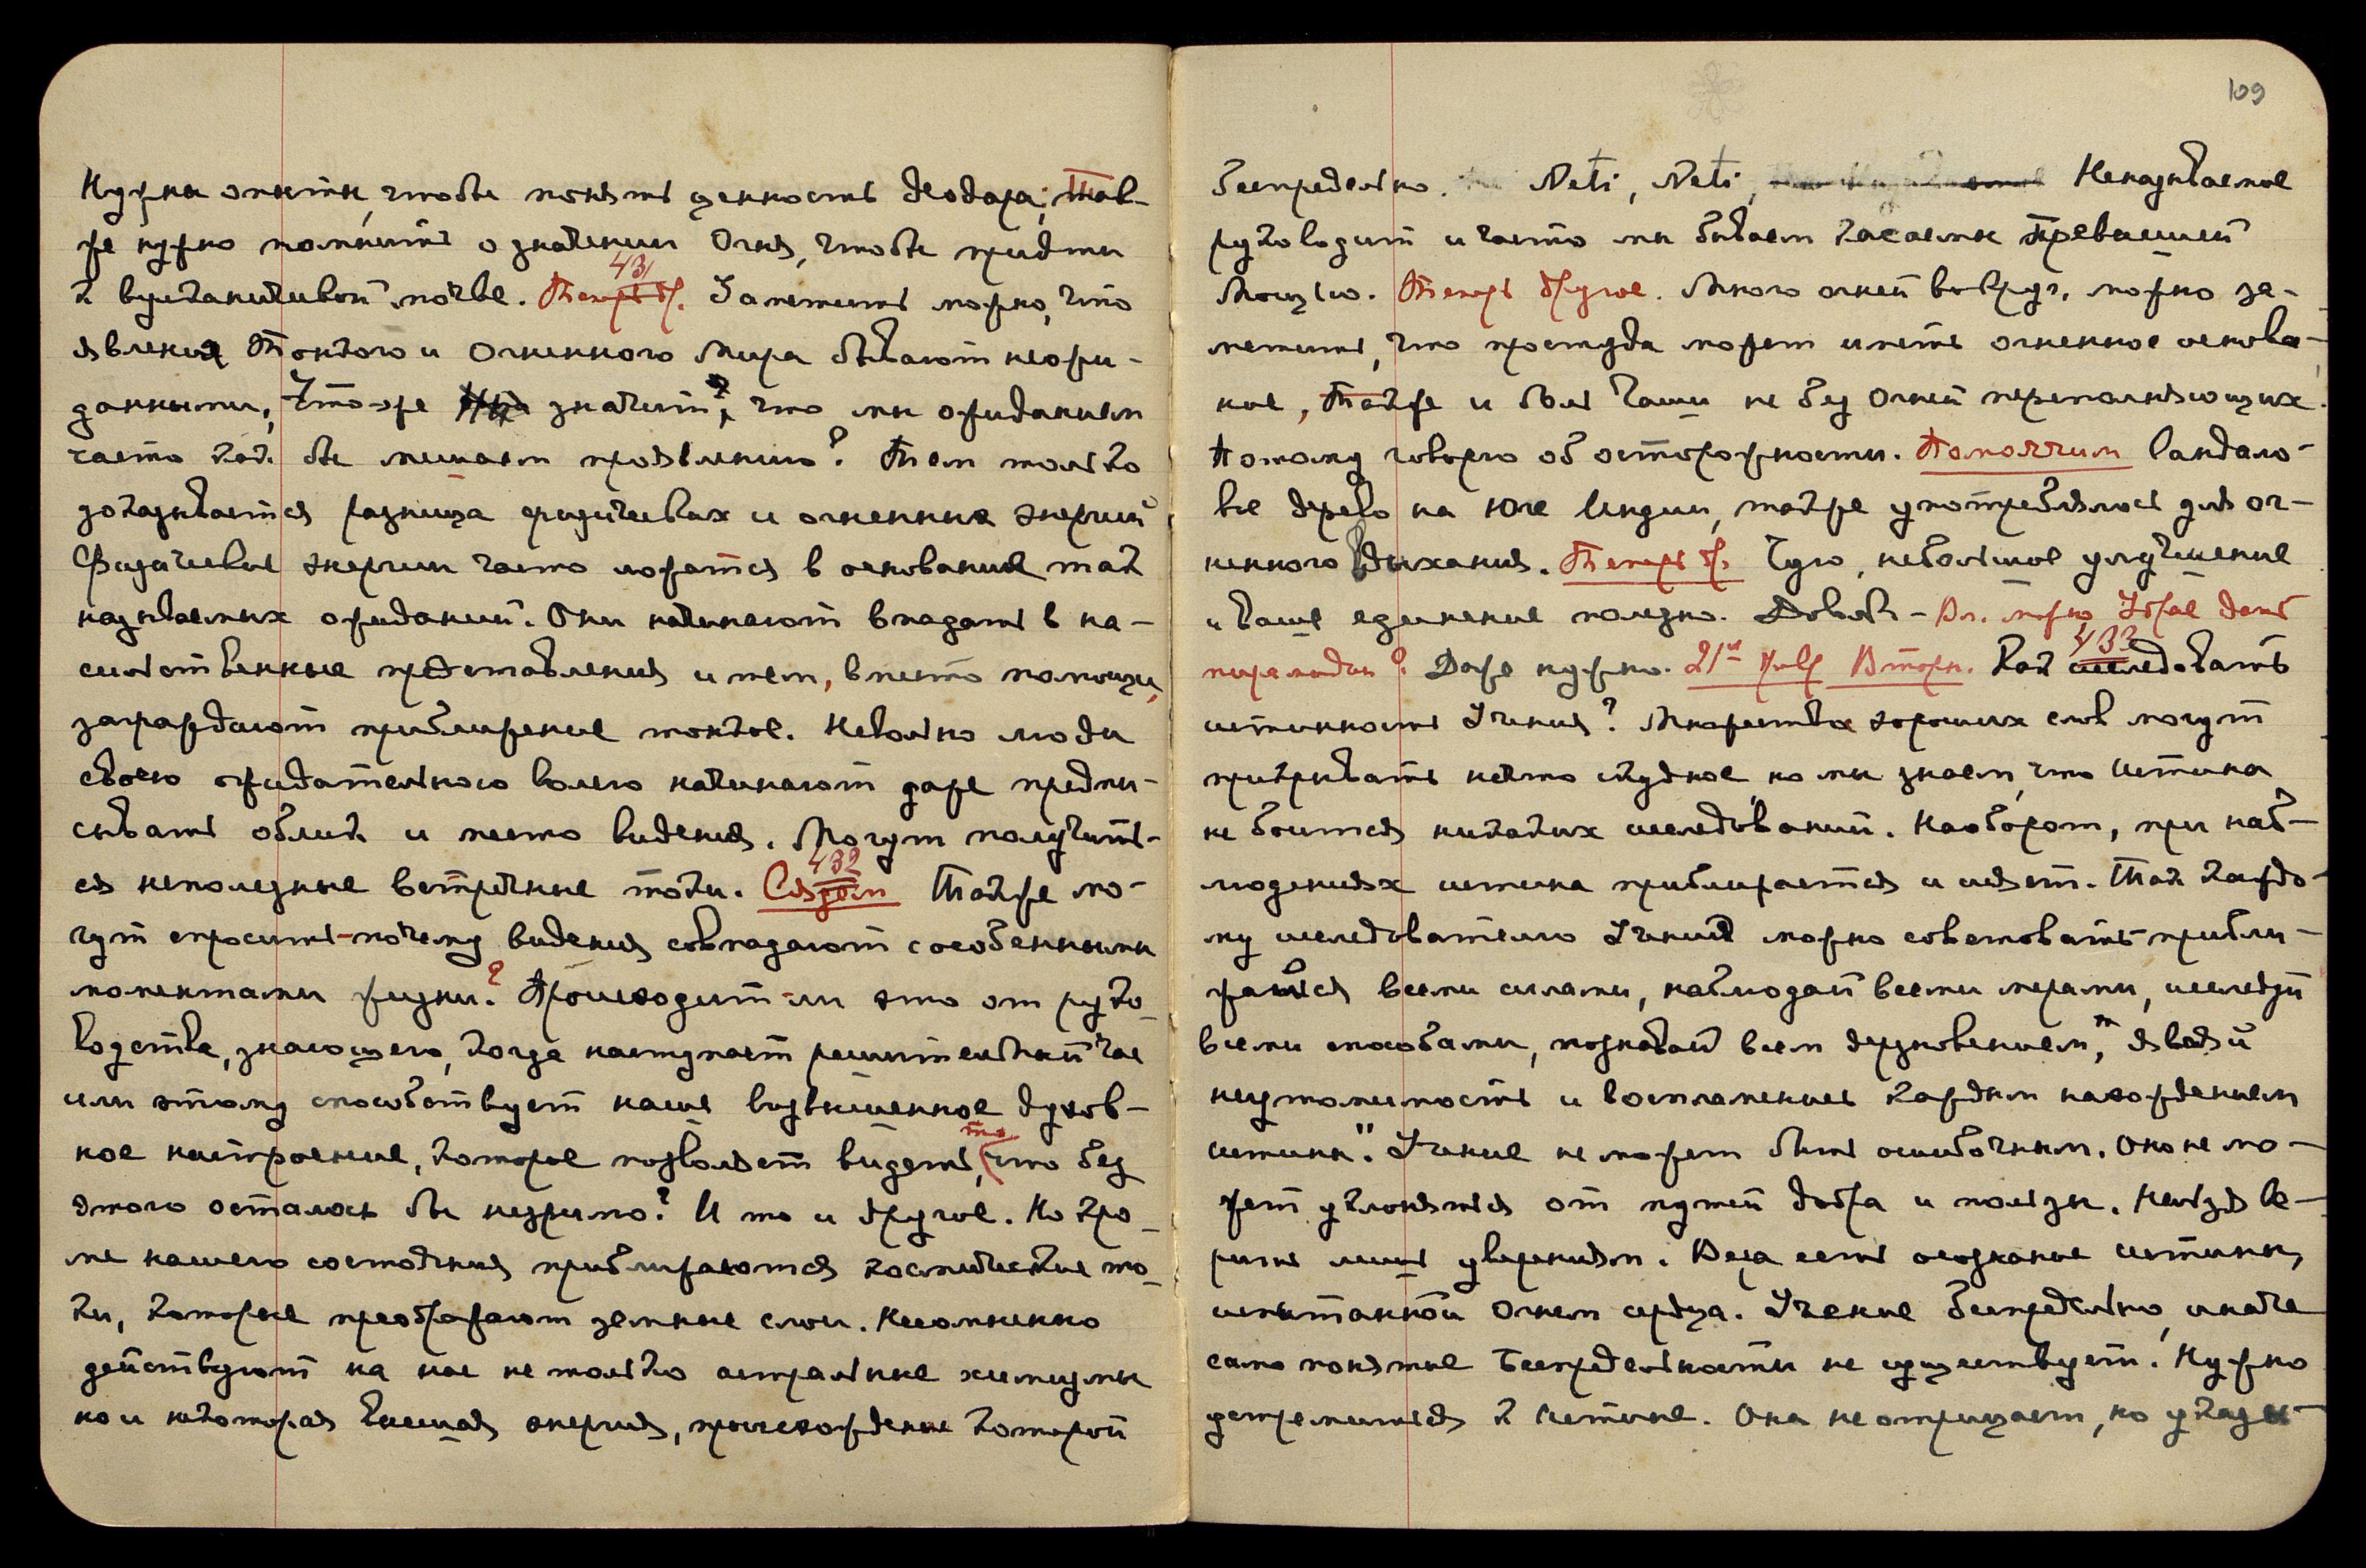 Нужны опыты, чтобы понять ценность деодара; так-
же нужно помнить о значении Огня, чтобы придти
к вулканической почве. Теперь др. 431 Заметить можно, что
явления Тонкого и Огненного Мира бывают неожи-
данными, Что же значит?, что мы ожиданием
часто как бы мешаем проявлению? Тем только
доказывается разница физических и огненных энергий
Физические энергии часто ложатся в основание так
называемых ожиданий. Они начинают впадать в на-
сильственные представления и тем, вместо помощи,
заграждают приближение тонкое. Невольно люди
своею ожидательною волею начинают даже предпи-
сывать облик и место видения. Могут получить-
ся неполезные встречные токи. Сядем 432 Также мо-
гут спросить-почему видения совпадают с особенными
моментами жизни? Происходит-ли это от руко-
водства, знающего, когда наступает решительный час
или этому способствует наше возвышенное духов-
ное настроение, которое позволяет видеть, то (что без
этого осталось бы незримо? И то и другое. Но кро-
ме нашего состояния приближаются космические то-
ки, которые преображают земные слои. Несомненно
действуют на нас не только астральные химизмы
но и некоторая высшая энергия, происхождение которой
109
беспредельно. Neti, Neti, Неназываемое
руководит и часто мы бываем касаемы Превысшей
Мощью. Теперь другое. Много огней вокруг, можно за-
метить, что простуда может иметь огненное основа-
ние, также и боли Чаши не без Огней переполняющих.
Потому говорю об осторожности. Помолчим Сандало-
вое дерево на Юге Индии, также употреблялось для ог-
ненного дыхания. Теперь др. Чую, небольшое улучшение
и ваше единение полезно. Довольно - Вл. можно Удрае дать
пирамидон? Даже нужно. 21ое Янв. Вторн. 433 Как исследовать
истинность Учения? Множества хороших слов могут
прикрывать нечто скудное, но мы знаем, что Истина
не боится никаких исследований. Наоборот, при наб-
людениях истина приближается и сияет. Так каждо-
му исследователю Учений можно советовать приибли-
жайся всеми силами, наблюдай всеми мерами, исследуй
всеми способами, познавай всем дерзновением, являй
неутомимость и воспламенись каждым нахождением
истины". Учение не может быть ошибочным. Оно не мо-
жет уклоняться от путей добра и пользы. Нельзя ве-
рить лишь уверениям. Вера есть осознание истины,
испытанной Огнем сердца. Учение беспредельно, иначе
само понятие Беспредельности не существует. Нужно
устремиться к Истине. Она не отрицает, но указы-